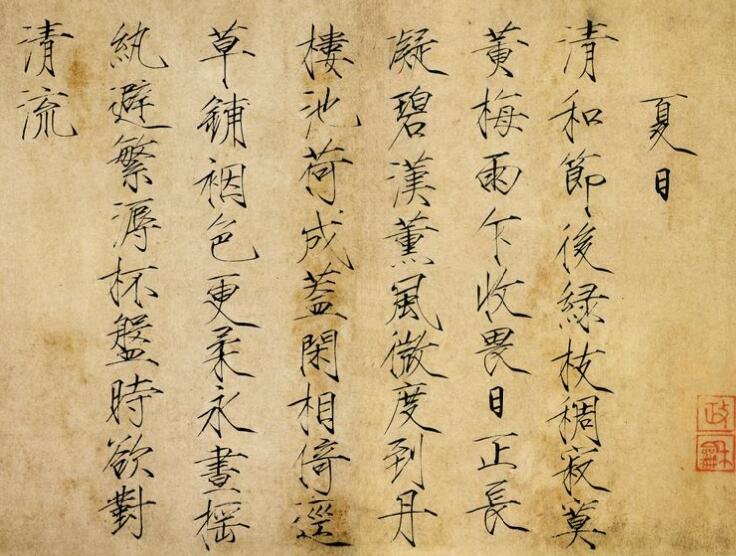 夏日
清和節後緑枝稠寂莫
黄梅雨乍收畏日正長
凝碧漢薰風微度到丹
樓池荷成蓋閑相倚逕
草鋪裀色更柔永晝揺
紈避繁溽杯盤時欲對
清流
政龢